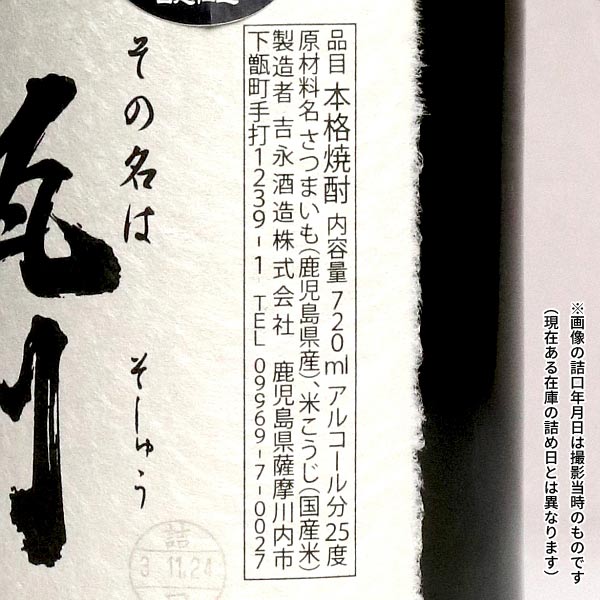 ※画像の詰口年月日は撮影当時のものです
(現在ある在庫の詰め日とは異なります)
品目 本格焼酎 内容量 720ml アルコール分 25度
原材料名 さつまいも(鹿児島県産)、米こうじ(国産米)
製造者 吉永酒造株式会社 鹿児島県薩摩川内市
下甑町手打1239-1 TEL 09969-7-0027
その名は そしゅう
川
詰
3.11.24